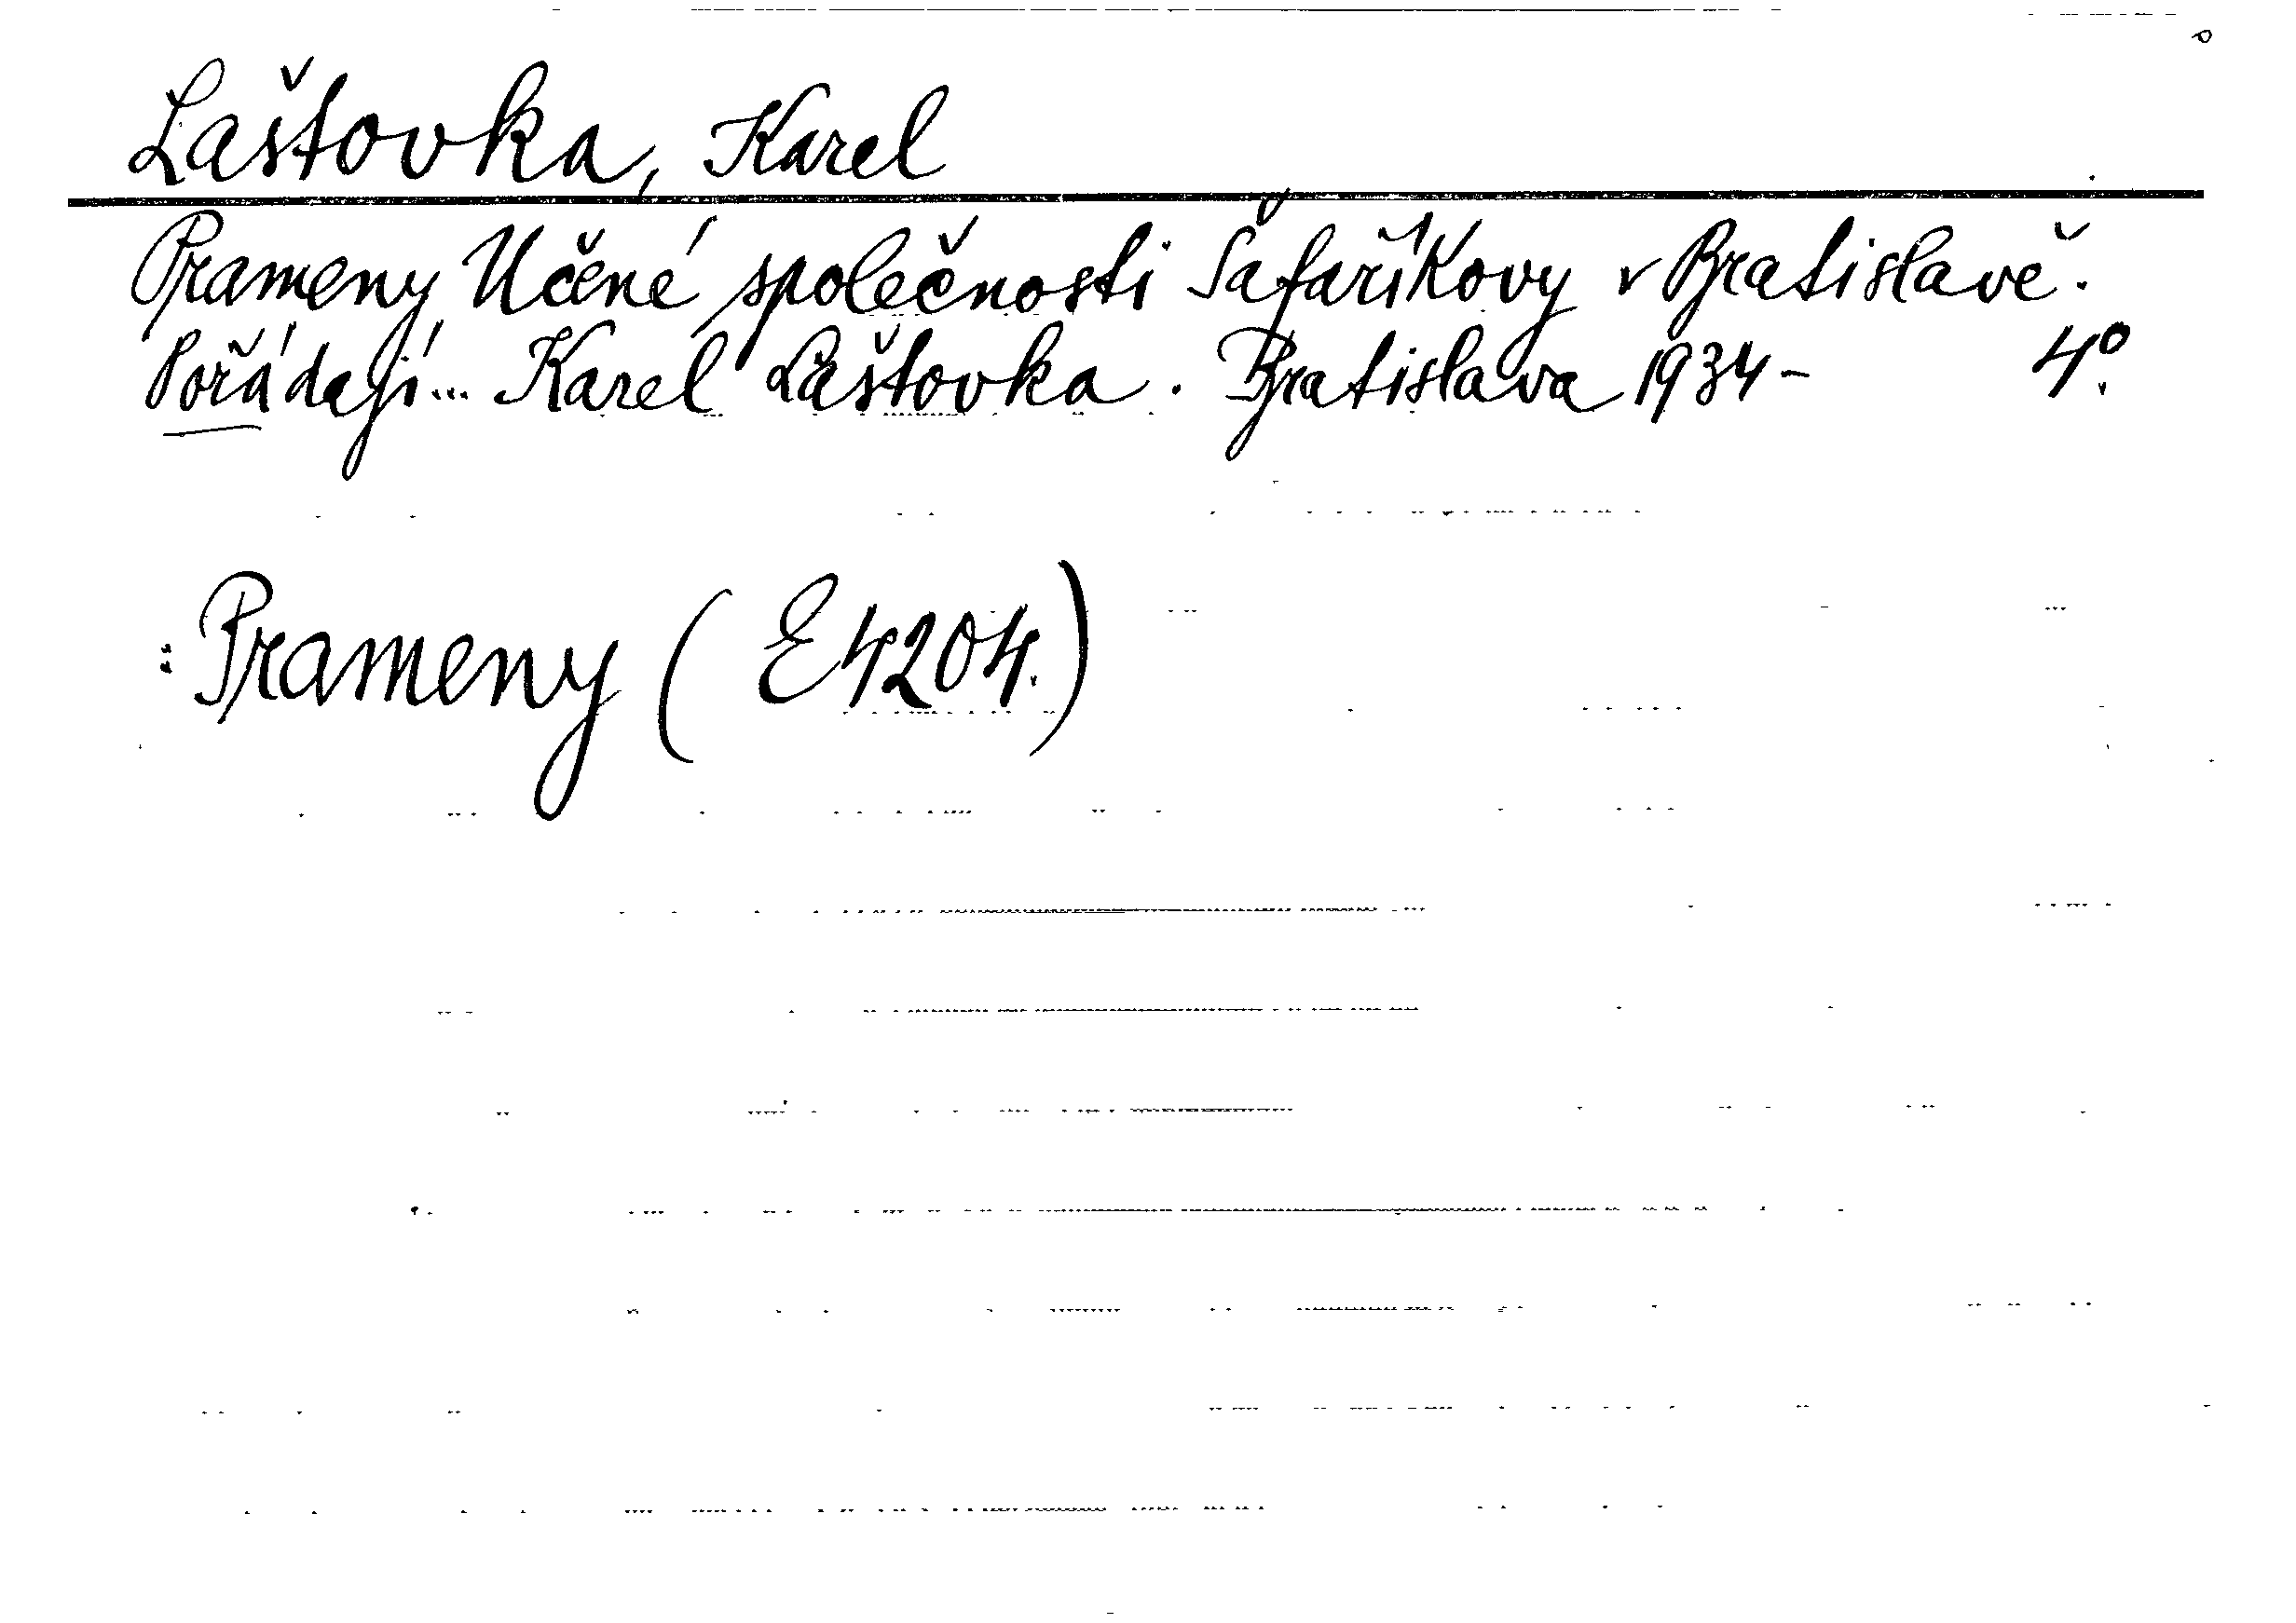 Laštovka, Karel
Prameny Učené společnosti Šafaříkovy v Bratislavě.
Pořádají... Karel Laštovka. Bratislava 1934- 4°.
: Prameny (E4204.)